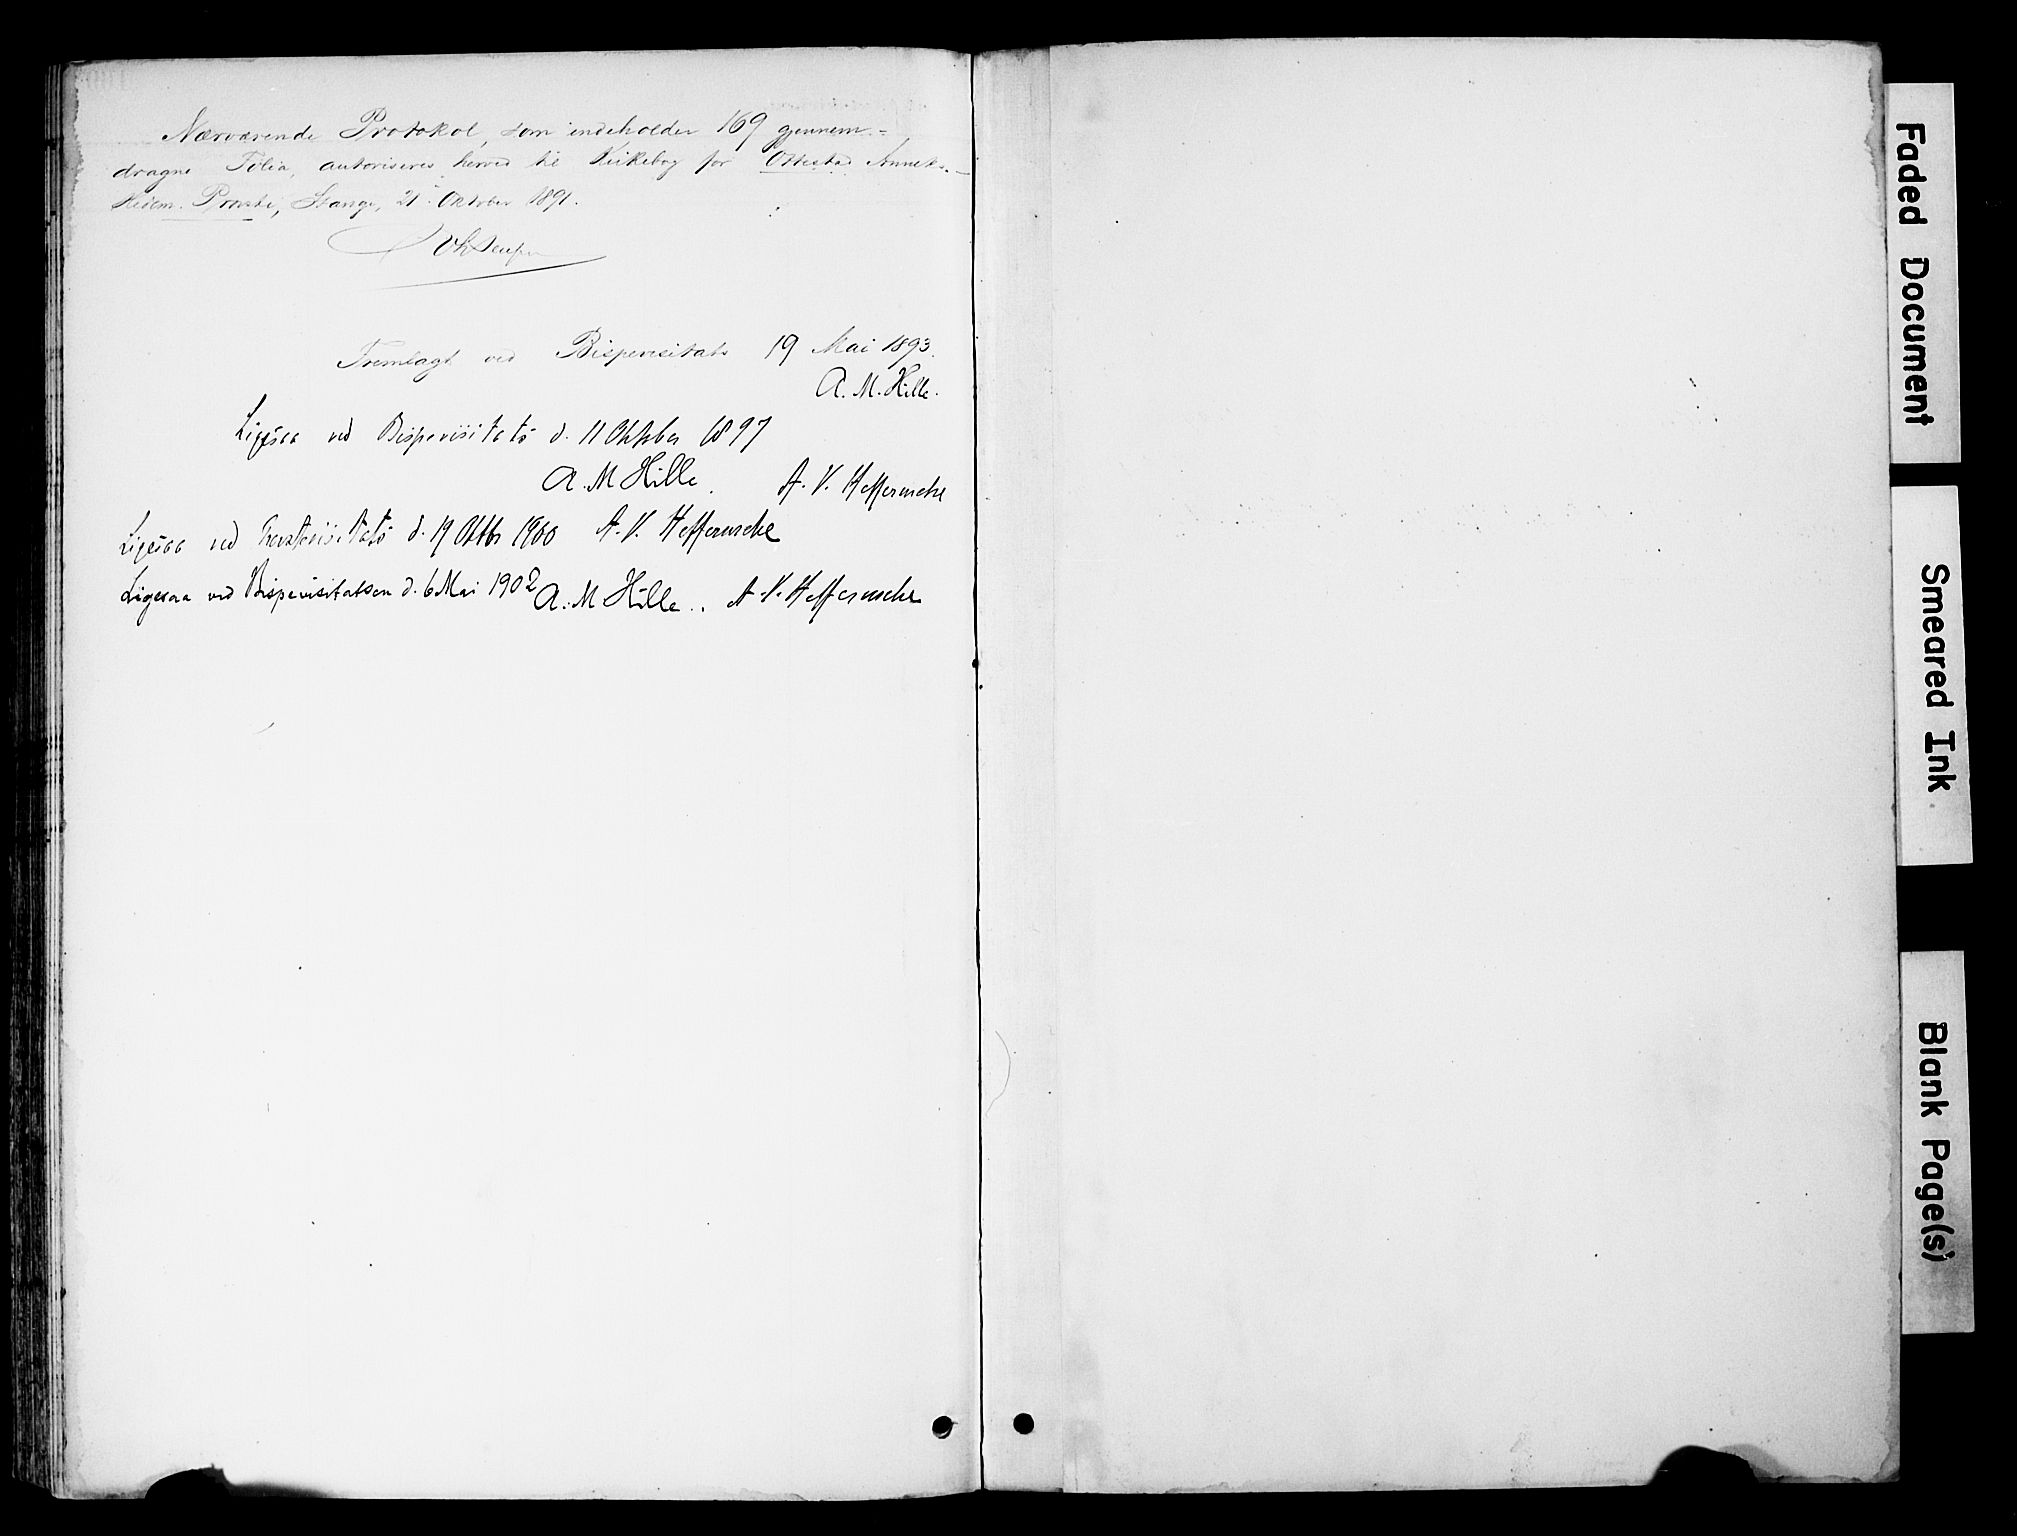 Nærværende Protokol, som indeholder 169 gjennem-
dragne Folia, autoriseres herved til Kirkebog for Ottestad Anneks.
Hedem. Provsti, Stange, 21 Oktober 1891.
Fremlagt ved Bispevisitats 19 Mai 1893.
A. M. Hille.
Ligesaa ved Bispevisitats d. 11 Oktober 1897
A. M Hille. A. V. Heffermehl
Ligesaa ved Provstevisitats d. 19 Oktbr 1900 A. V. Heffermehl
Ligesaa ved Bispevisitatsen d. 6 Mai 1902 A. M Hille.. A V. Heffermehl
Faded Document
Smeared Ink
Blank Page(s)